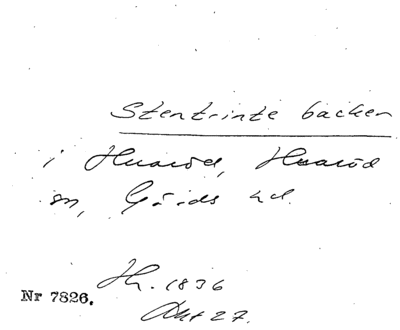 Stentrinte backen
i Huaröd, Huaröd
sn, Gärds hd.
Hh. 1836
Akt 27.
Nr 7826.